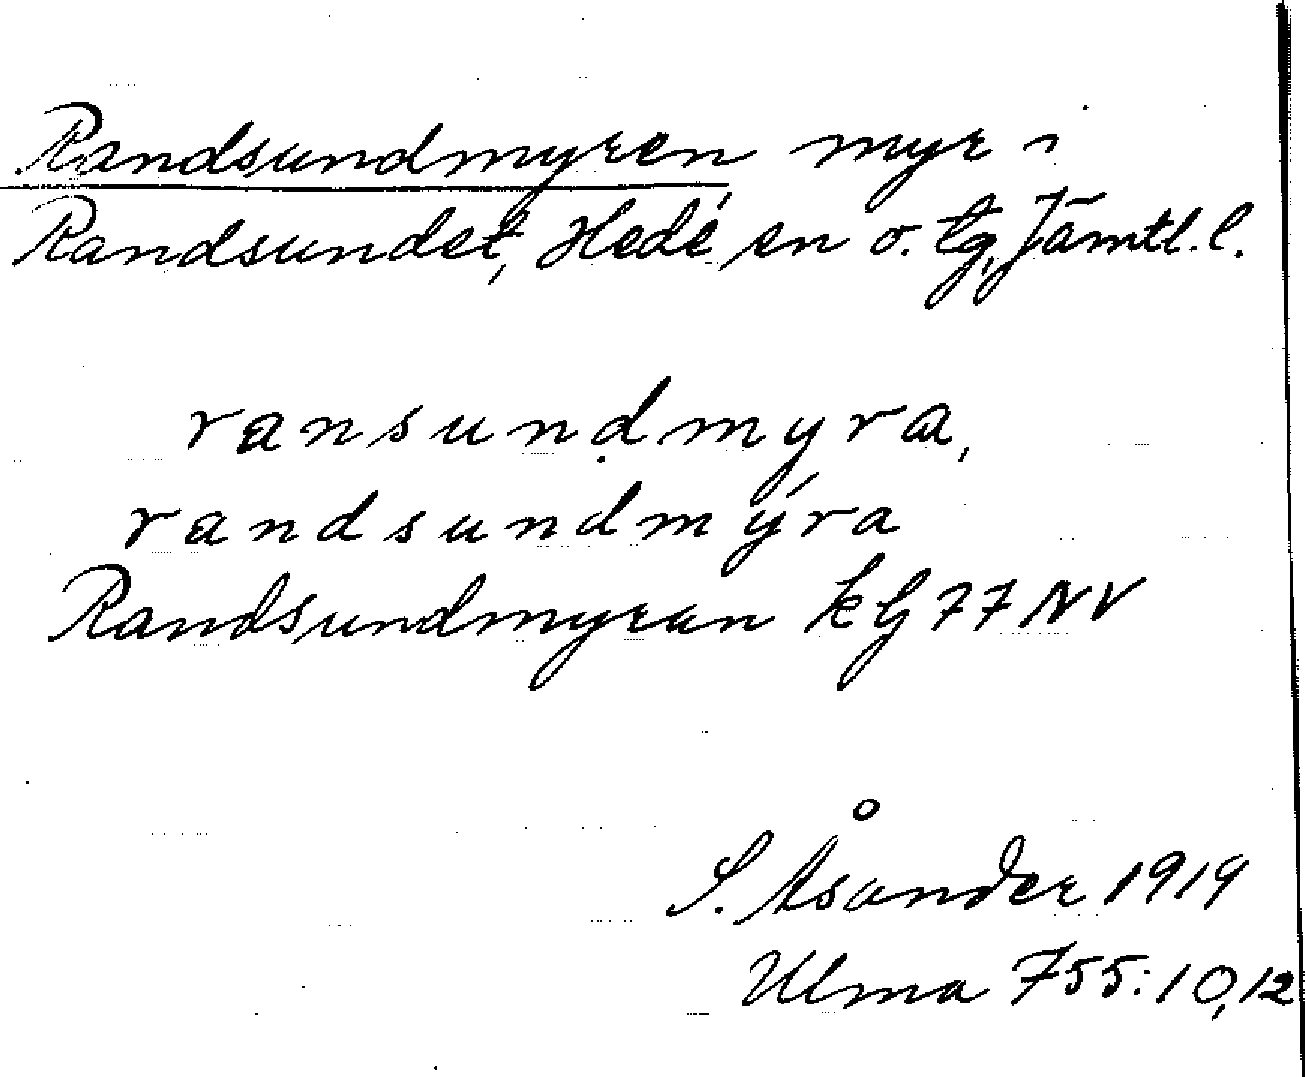 Randsundmyren myr i
Randsundet, Hede, sn o. tg, Jämtl. l.
ransundmyra,
randsundmýra
Randsundmyran kbl 77 NV
S. Åsander 1919
Ulma 755:10,12